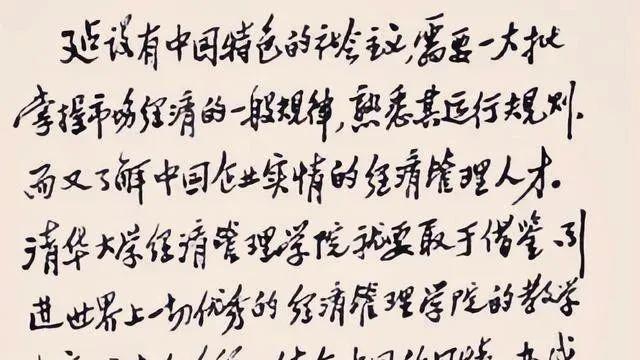 建设有中国特色的社会主义,需要一大批
掌握市场经济的一般规律,熟悉其运行规则,
而又了解中国企业实情的经济管理人才。
清华大学经济管理学院就要敢于借鉴、引
进世界上一切优秀的经济管理学院的教学